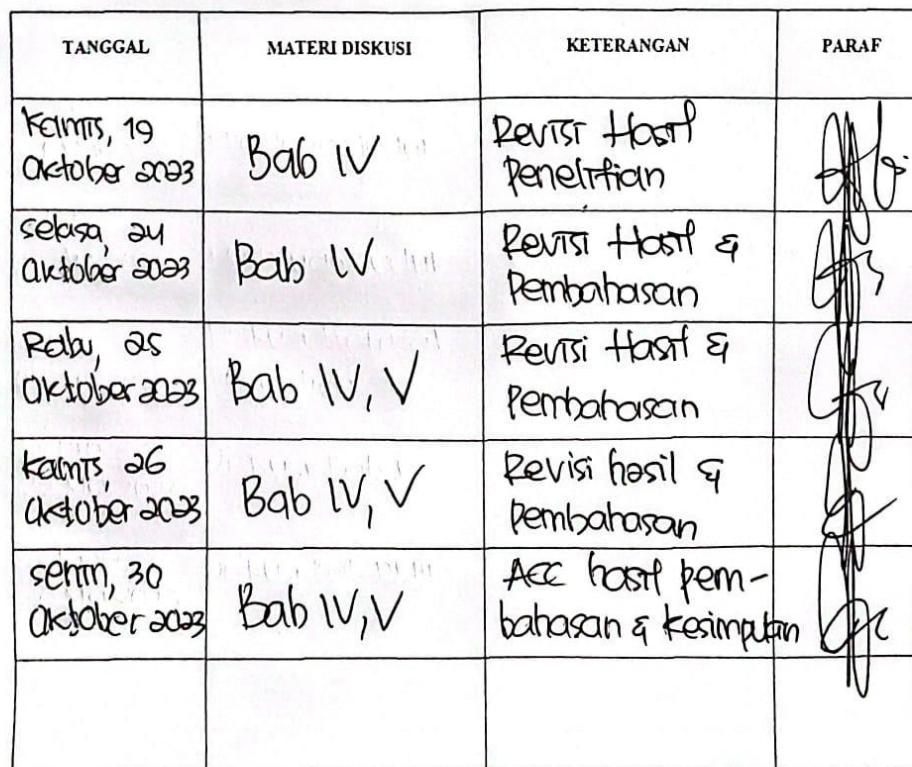 TANGGAL MATERI DISKUSI KETERANGAN PARAF
Kamis, 19
Oktober 2023
Bab IV
Revisi Hasil
Penelitian
Selasa, 24
Oktober 2023
Bab IV
Revisi Hasil &
Pembahasan
Rabu, 25
Oktober 2023
Bab IV, V
Revisi Hasil &
Pembahasan
Kamis, 26
Oktober 2023
Bab IV, V
Revisi hasil &
Pembahasan
Senin, 30
Oktober 2023
Bab IV, V
ACC hasil pem-
bahasan & kesimpulan